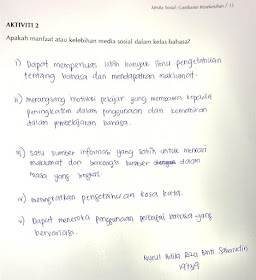 Media Sosial: Gambaran Keseluruhan / 11
AKTIVITI 2
Apakah manfaat atau kelebihan media sosial dalam kelas bahasa?
i) Dapat memperluas lebih banyak ilmu pengetahuan
tentang bahasa dan mendapatkan maklumat.
ii) merangsang motivasi pelajar yang membawa kepada
peningkatan dalam penggunaan dan kemahiran
dalam pembelajaran bahasa.
iii) satu sumber informasi yang lebih untuk mencari
maklumat dan berkongsi sumber dalam
masa yang singkat.
iv) meningkatkan pengetahuan kosa kata.
v) Dapat meneroka penggunaan pelbagai bahasa yang
bervariasi.
Nurul Adila Binti